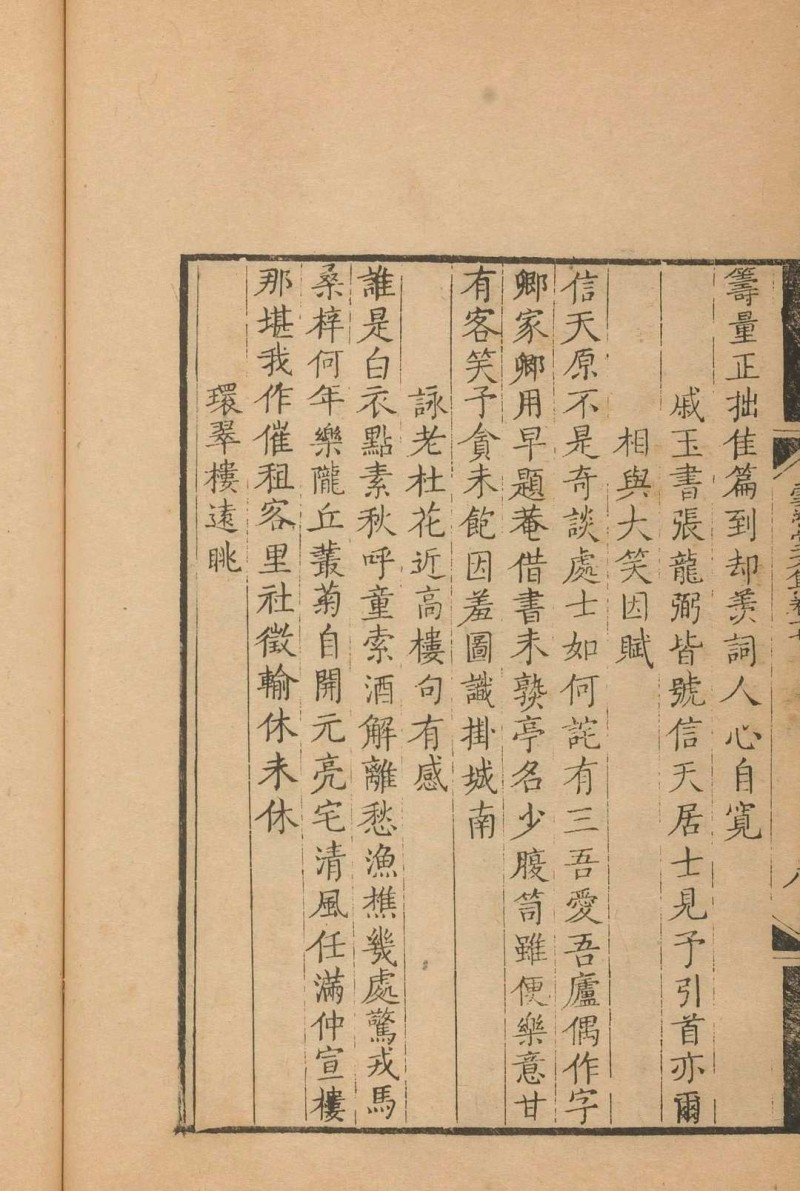 籌量正拙佳篇到却羨詞人心自寬
戚玉書張龍弼皆號信天居士見予引首亦爾
相與大笑因賦
信天原不是奇談處士如何詫有三吾愛吾廬偶作字
卿家卿用早題菴借書未孰亭名少腹笥雖便樂意甘
有客笑予貪未飽因羞圖識掛城南
詠老杜花近高樓句有感
誰是白衣點素秋呼童索酒解離愁漁樵幾處驚戎馬
桑梓何年樂隴丘叢菊自開元亮宅清風任滿仲宣樓
那堪我作催租客里社徵輸休未休
環翠樓遠眺